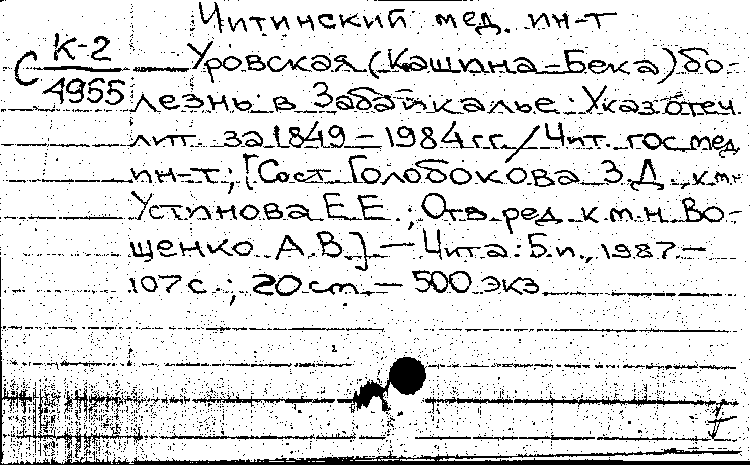 Читинский мед. ин-т
С К-2
4955
Уровская (Кашина-Бека) бо-
лезнь в Забайкалье: Указ. отеч.
лит. за 1849-1984 гг. / Чит. гос. мед.
ин-т; [Сост. Голобокова З.Д., к.м.н.
Устинова Е.Е.; Отв. ред. к.м.н. Во-
щенко А.В.] — Чита: Б.и., 1987 —
107 с.; 20 cm. — 500 экз.